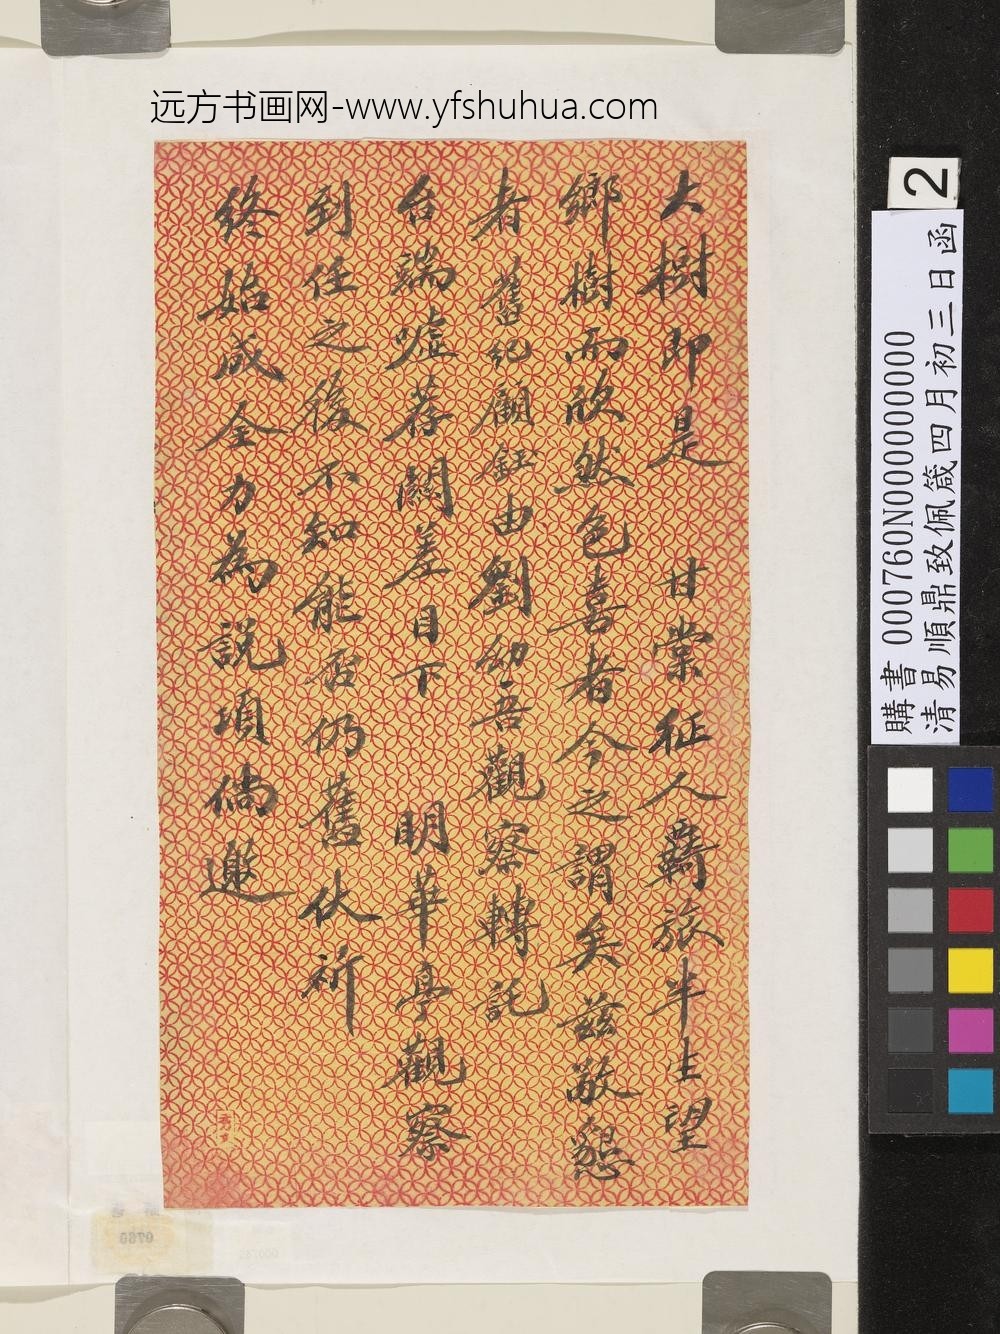 远方书画网-www.yfshuhua.com
大樹即是　甘棠征人羇旅半上望
鄉樹而欣然色喜者今之謂矣茲敬懇
者舊記顧鈺由劉幼吾觀察轉託
台端噓荐關差目下　明華亭觀察
到任之後不知能否仍舊伏祈
終始成全力為說項倘邀
2
購書 000760N000000000
清易順鼎致佩箴四月初三日函